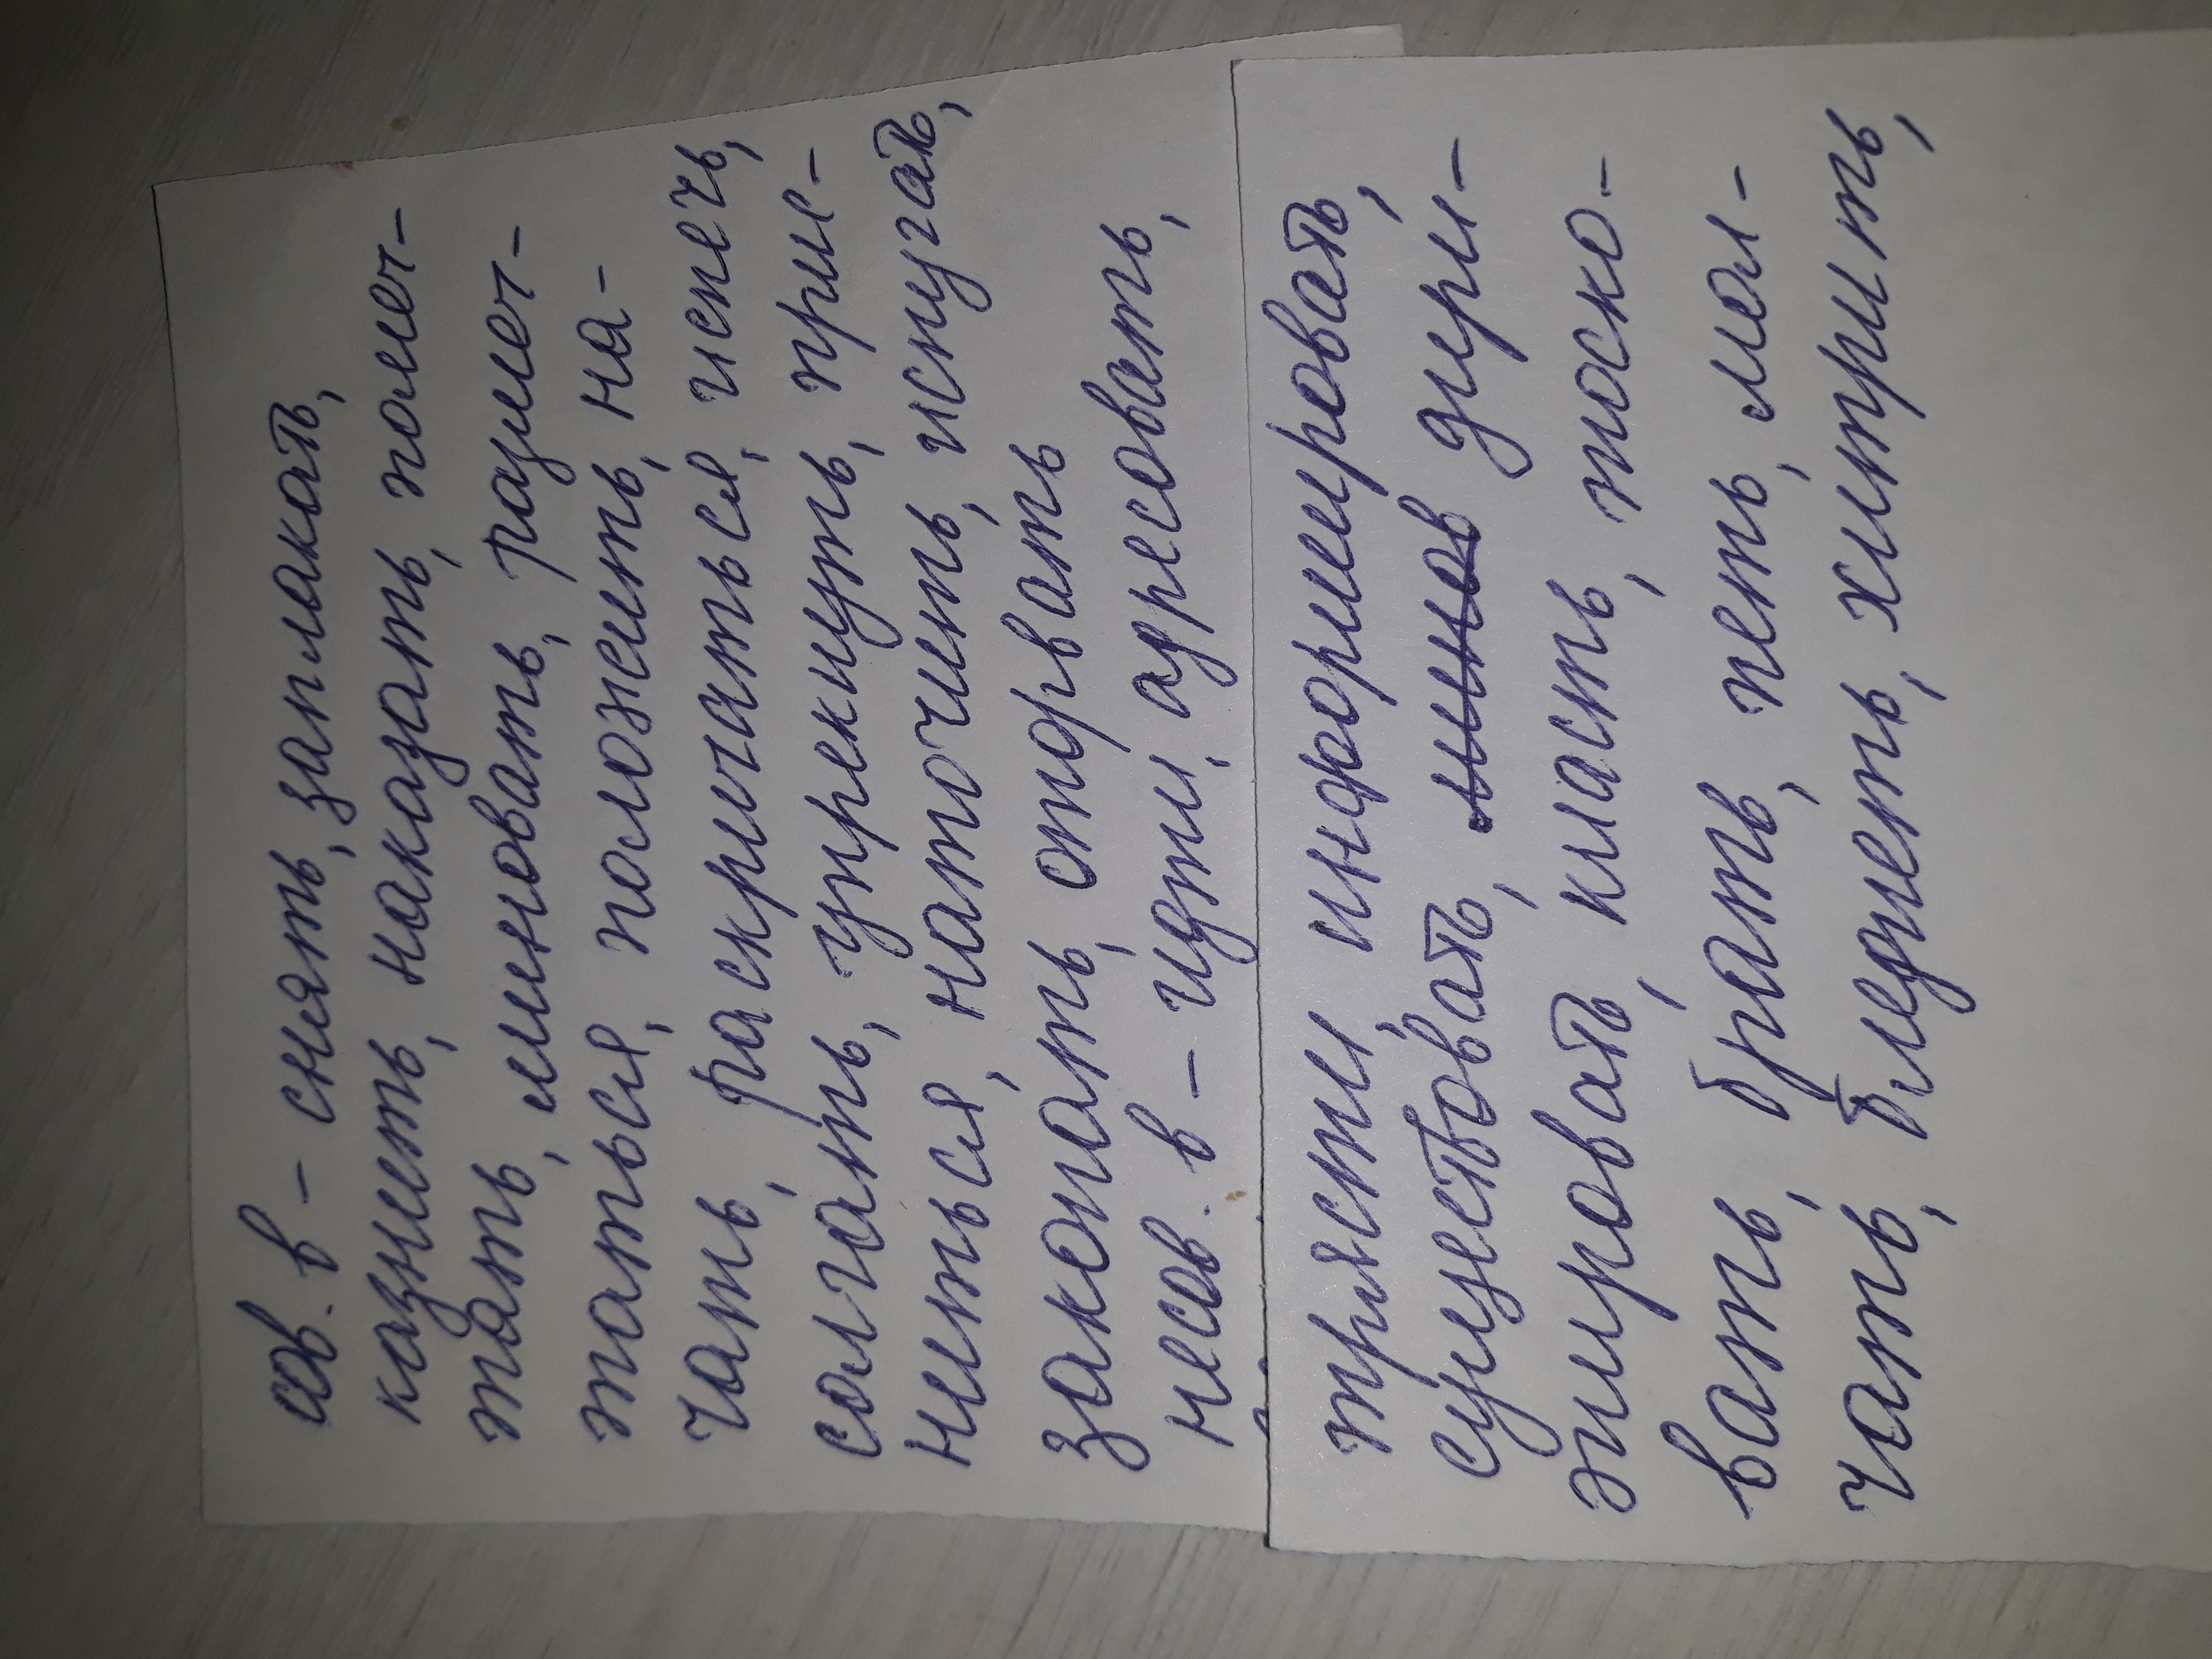 сов. в - снять, заплакать,
казнить, наказать, помеч-
тать, миновать, размеч-
таться, положить, на-
чать, раскричаться, испечь,
солгать, упрекнуть, при-
ниться, наточить, испугать,
закопать, оторвать
несов. в - идти, адресовать,
трясти, информировать,
существовать, дири-
жировать, класть, тоско-
вать, брать, петь, мол-
чать, бледнеть, хитрить,